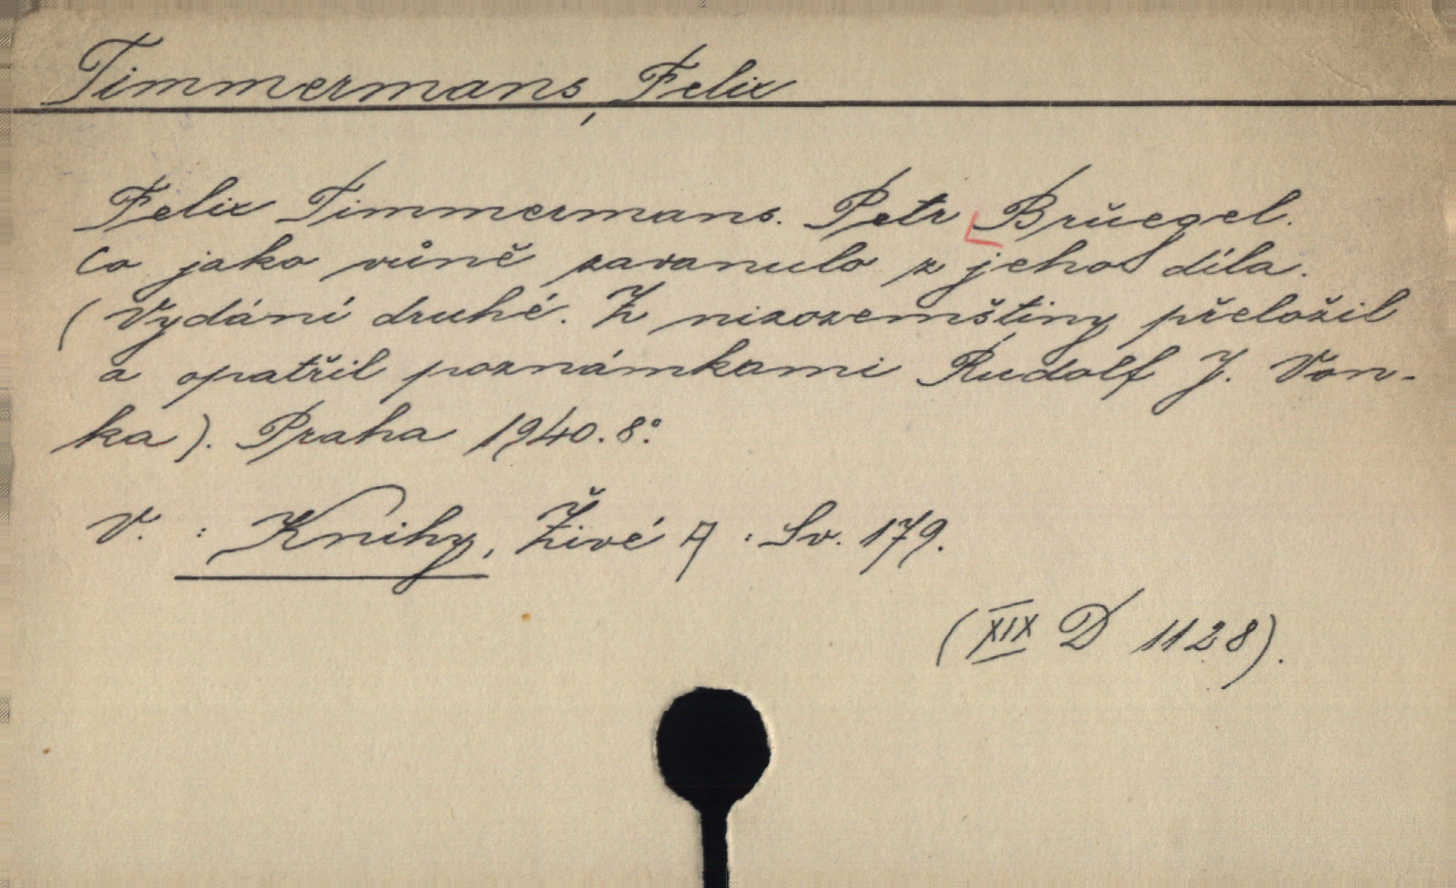 Timmermans, Felix
Felix Timmermans. Petr Brüegel.
Co jako vůně zavanulo z jeho díla.
(Vydání druhé. Z nizozemštiny přeložil
a opatřil poznámkami Rudolf J. Von-
ka). Praha 1940. 8°.
V. : Knihy, Živé A : Sv. 179.
(XIX D 1128).